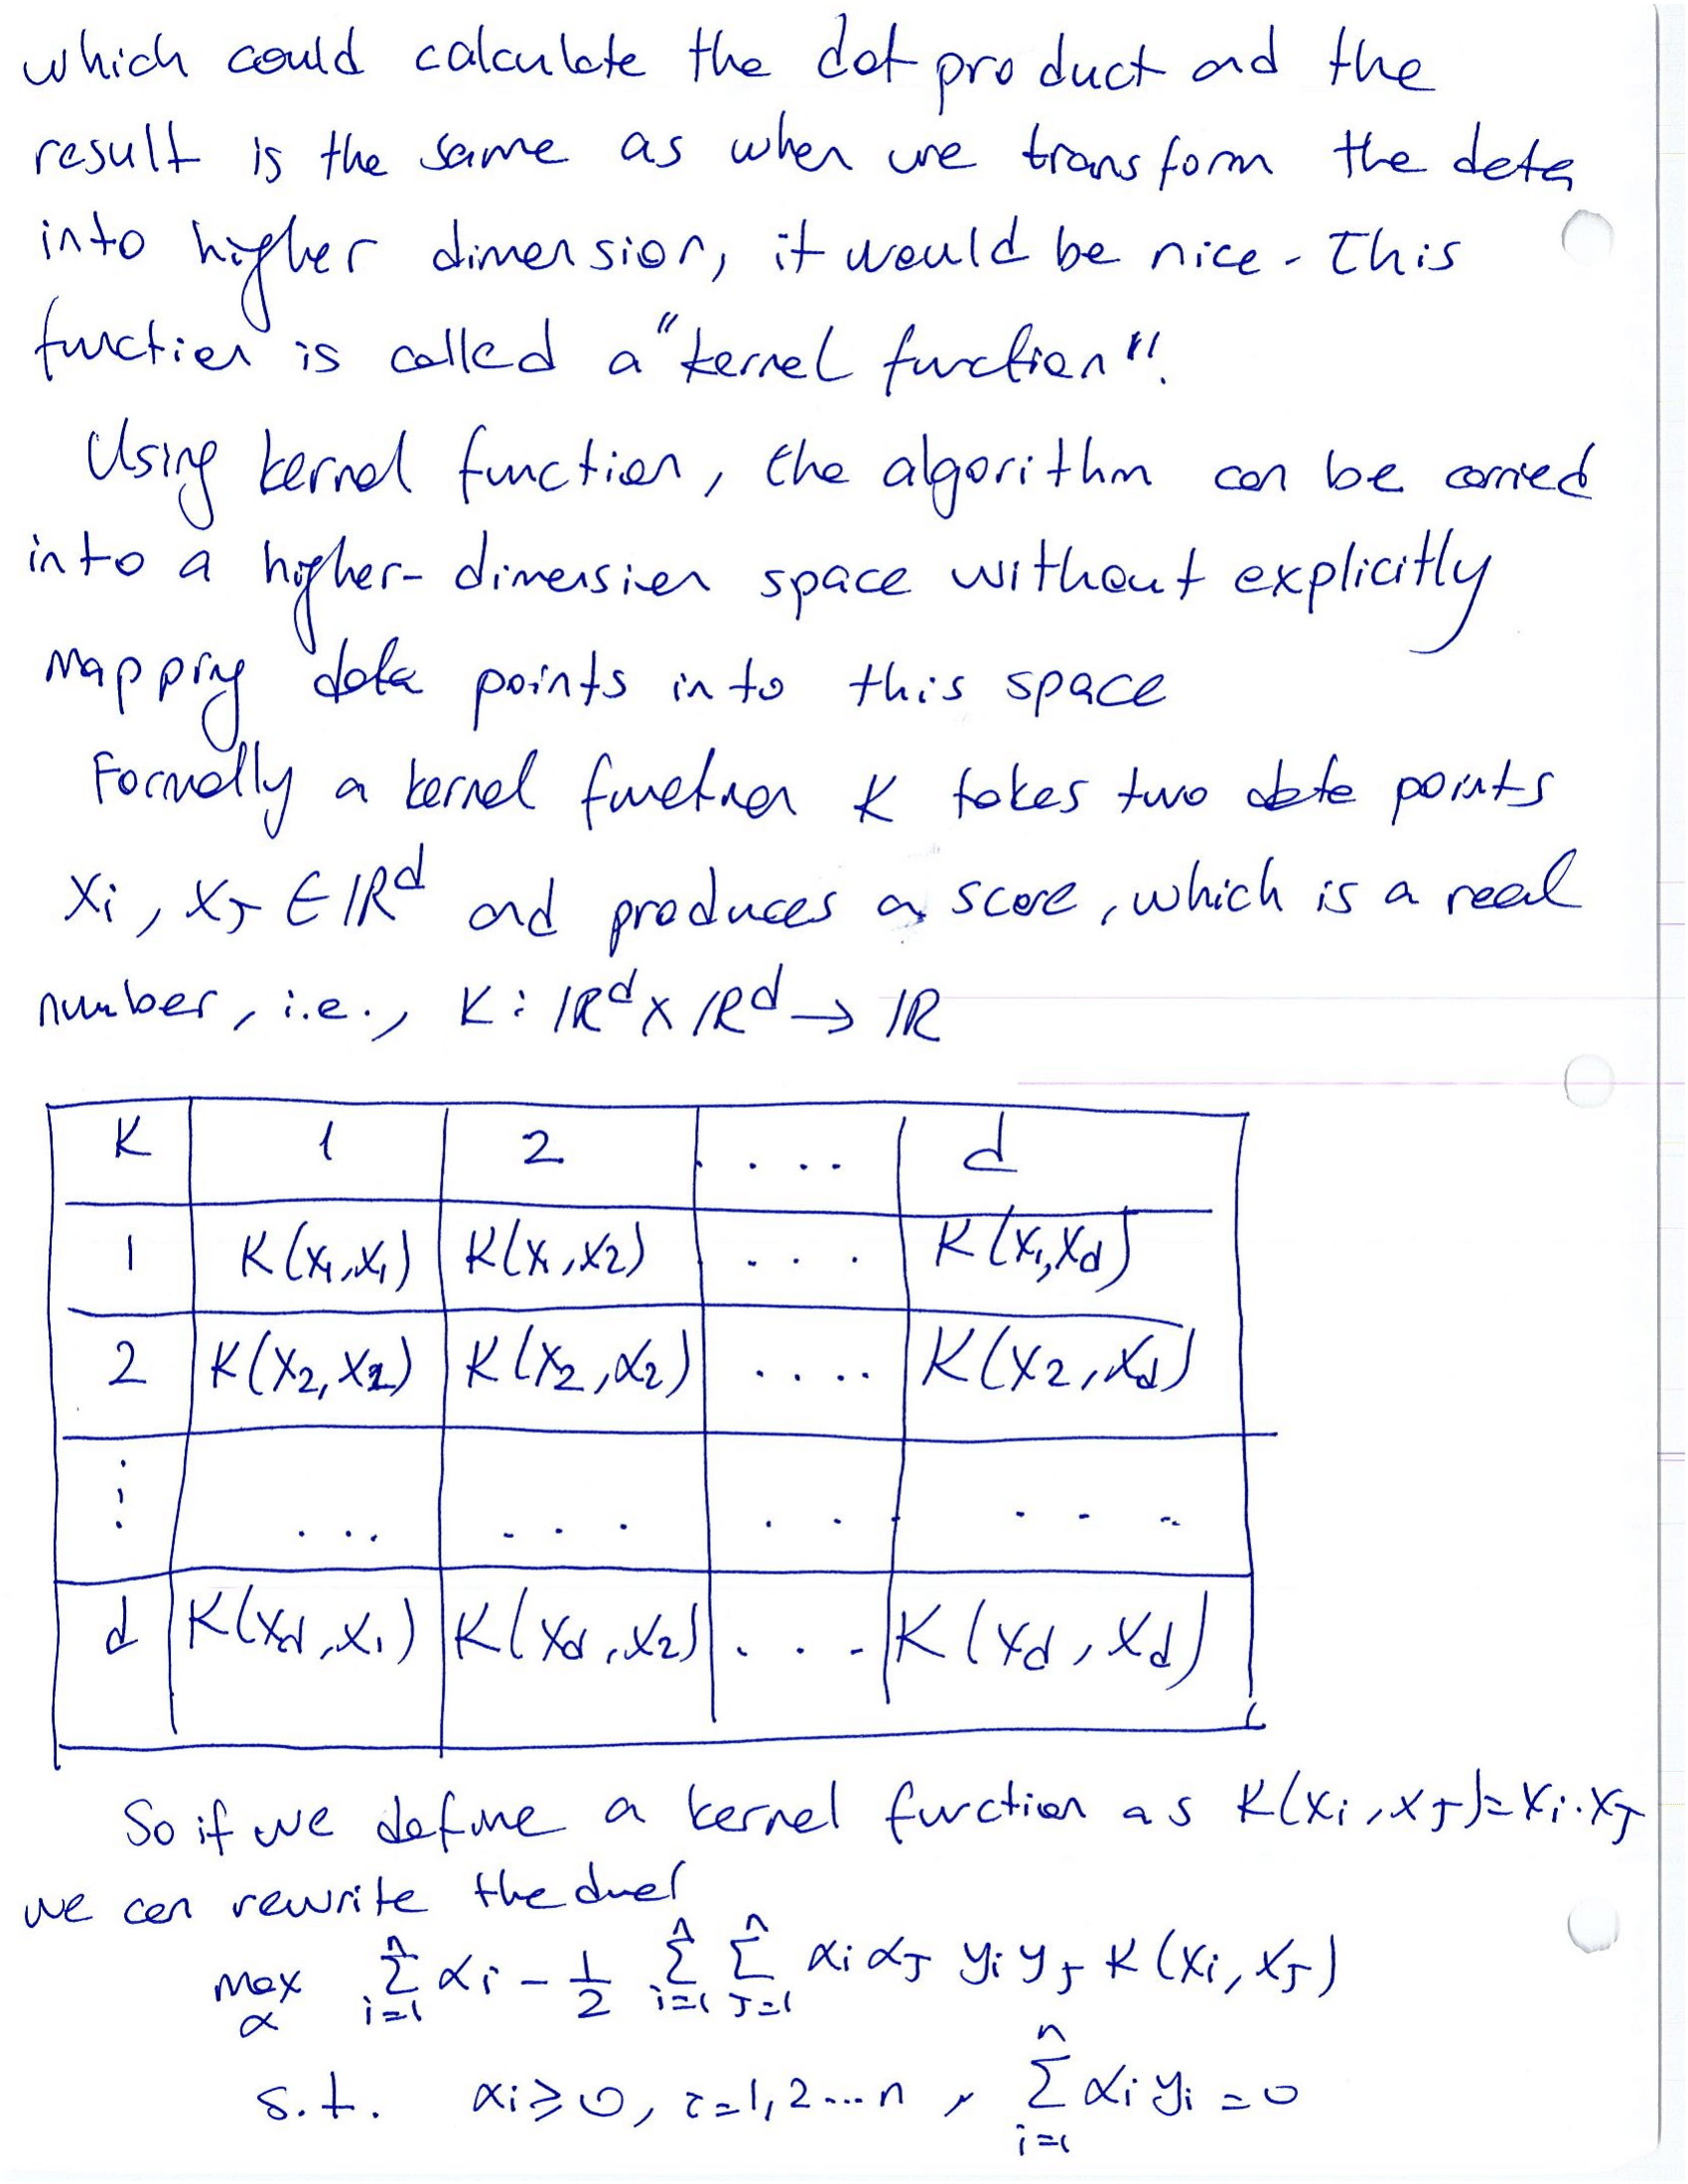 which could calculate the dot product and the
result is the same as when we transform the data
into higher dimension, it would be nice. This
function is called a "kernel function".
Using kernel function, the algorithm can be carried
into a higher-dimension space without explicitly
mapping data points into this space
Formally a kernel function K takes two data points
xi, xj ∈ ℝ^d and produces a score, which is a real
number, i.e., K: ℝ^d x ℝ^d → ℝ
K 1 2 .... d
1 K(x1,x1) K(x1,x2) ... K(x1,xd)
2 K(x2,x1) K(x2,x2) .... K(x2,xd)
⋮ ... ... ... ...
d K(xd,x1) K(xd,x2) ... K(xd,xd)
So if we define a kernel function as K(xi,xj)=xi.xj
we can rewrite the dual
max_α Σ_{i=1}^n αi - 1/2 Σ_{i=1}^n Σ_{j=1}^n αi αj yi yj K(xi,xj)
s.t. αi ≥ 0, i=1,2...n, Σ_{i=1}^n αi yi = 0